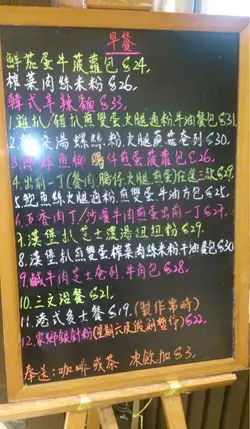 早餐
鮮茄蛋牛菠蘿包 $24.
榨菜肉絲米粉 $26.
韓式辛辣麵 $33.
1. 雞扒/豬扒煎雙蛋火腿通粉牛油餐包 $31.
2. 湯螺絲粉火腿 套列 $30.
3. 炸魚柳腸仔煎蛋菠蘿包 $26.
4. 出前一丁(餐肉.腸仔.火腿.煎蛋)任選三款 $29.
5. 鮑魚絲通粉煎雙蛋牛油方包 $25.
6. 五香肉丁/沙嗲牛肉煎蛋出前一丁 $29.
7. 漢堡扒芝士濃湯扭扭粉 $29.
8. 漢堡扒煎雙蛋榨菜肉絲米粉牛油餐包 $30
9. 鹹牛肉芝士會列.牛角包 $28.
10. 三文治餐 $21.
11. 港式多士餐 $19. (製作需時)
12. 家鄉銀針粉(星期六及假期暫停) $22.
奉送:咖啡或茶 凍飲加 $3.